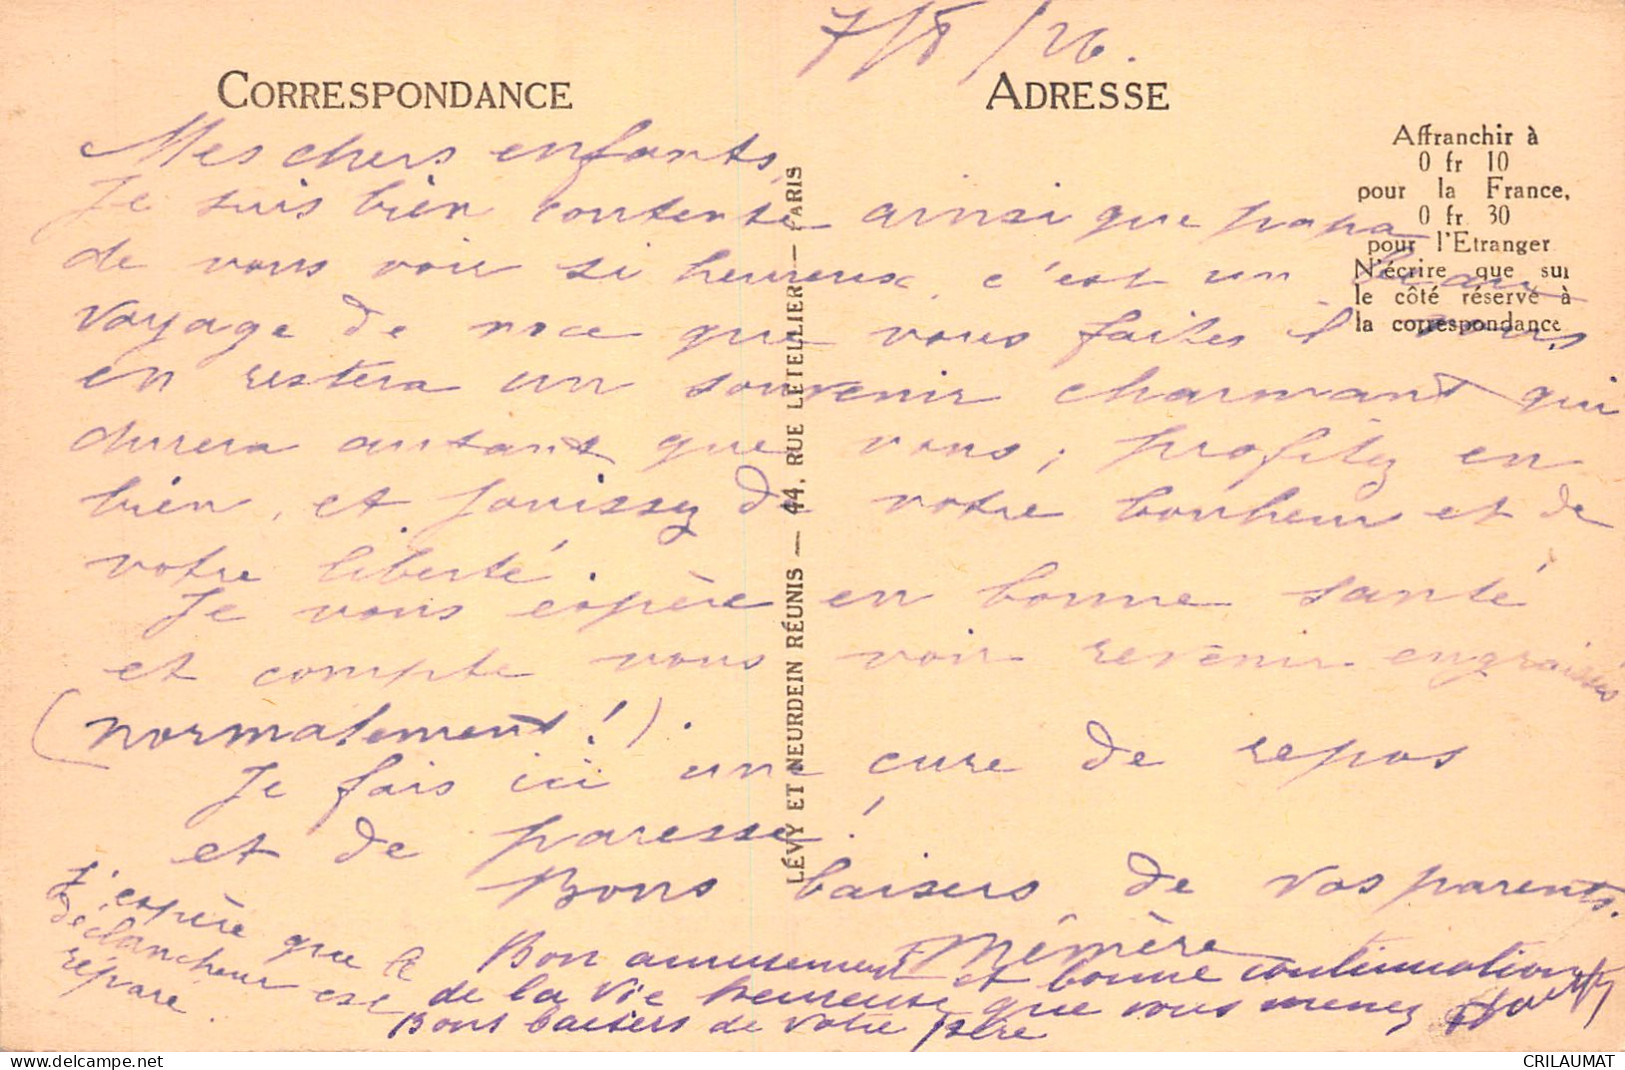 7/8/26.
CORRESPONDANCE
ADRESSE
Affranchir à
0 fr 10
pour la France,
0 fr 30
pour l'Etranger
N'écrire que sur
le côté réservé à
la correspondance
LÉVY ET NEURDEIN RÉUNIS — 44, RUE LETELLIER — PARIS
Mes chers enfants,
Je suis bien contente ainsi que papa
de vous voir si heureux, c'est un beau
voyage de noce que vous faites il vous
en restera un souvenir charmant qui
durera autant que vous; profitez en
bien, et jouissez de votre bonheur et de
votre liberté.
Je vous espère en bonne santé
et compte vous voir revenir engraissés
(normalement!).
Je fais ici une cure de repos
et de paresse!
Bons baisers de vos parents.
Mémère
J'espère que le
déclancheur est
réparé.
Bon amusement et bonne continuation
de la vie heureuse que vous menez
Bons baisers de votre père
CRILAUMAT
delcampe.net